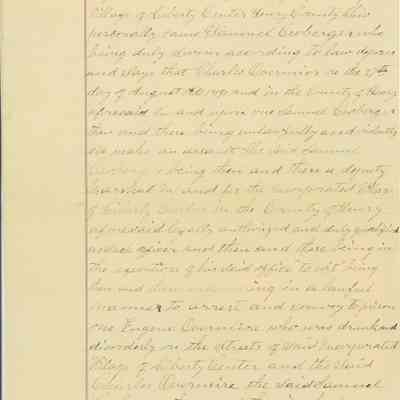 Village of Liberty Center Henry County Ohio
personally came Samuel Leoberger who
being duly sworn according to law deposes
and Says that Charles Overmier on the 27th
day of August AD 1891 and in the County of Henry
aforesaid in and upon one Samuel Leoberger
then and there being unlawfully and violently
did make an assault the Said Samuel
Leoberger being then and there a deputy
marshal in and for the incorporated Village
of Liberty Center in the County of Henry
aforesaid legally authorized and duly qualified
as such officer and then and there being in
the execution of his said office to wit being
then and there in a lawful
manner to arrest and convey to prison
one Eugene Overmire who was drunk and
disorderly on the Streets of Said Incorporated
Village of Liberty Center and the Said
Charles Overmire the Said Samuel